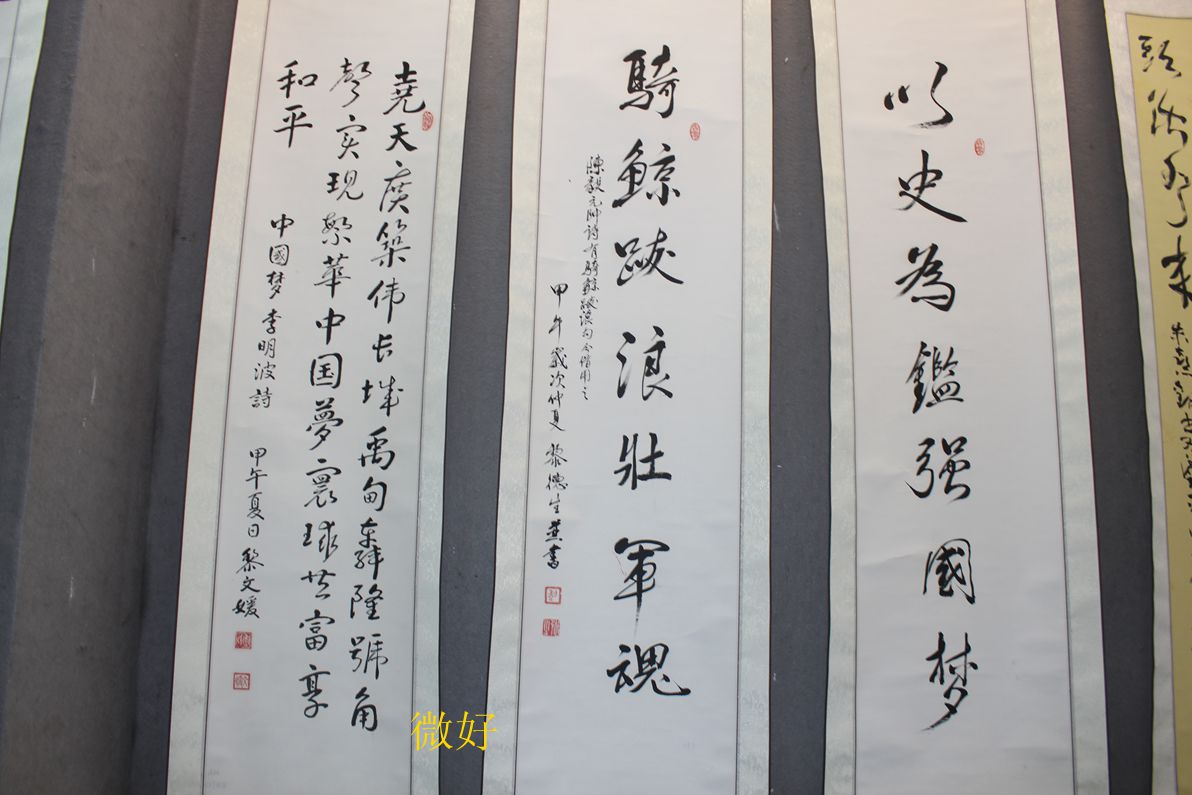 以史為鑑强國梦
騎鲸跋浪壯軍魂
陳毅元帅诗有骑鲸跋浪句今借用之
甲午歲次仲夏 黎德生並書
堯天廣築伟长城禹甸轟隆號角
聲实現繁華中国夢寰球共富享
和平 中國梦 李明波詩 甲午夏日 黎文媛
微好